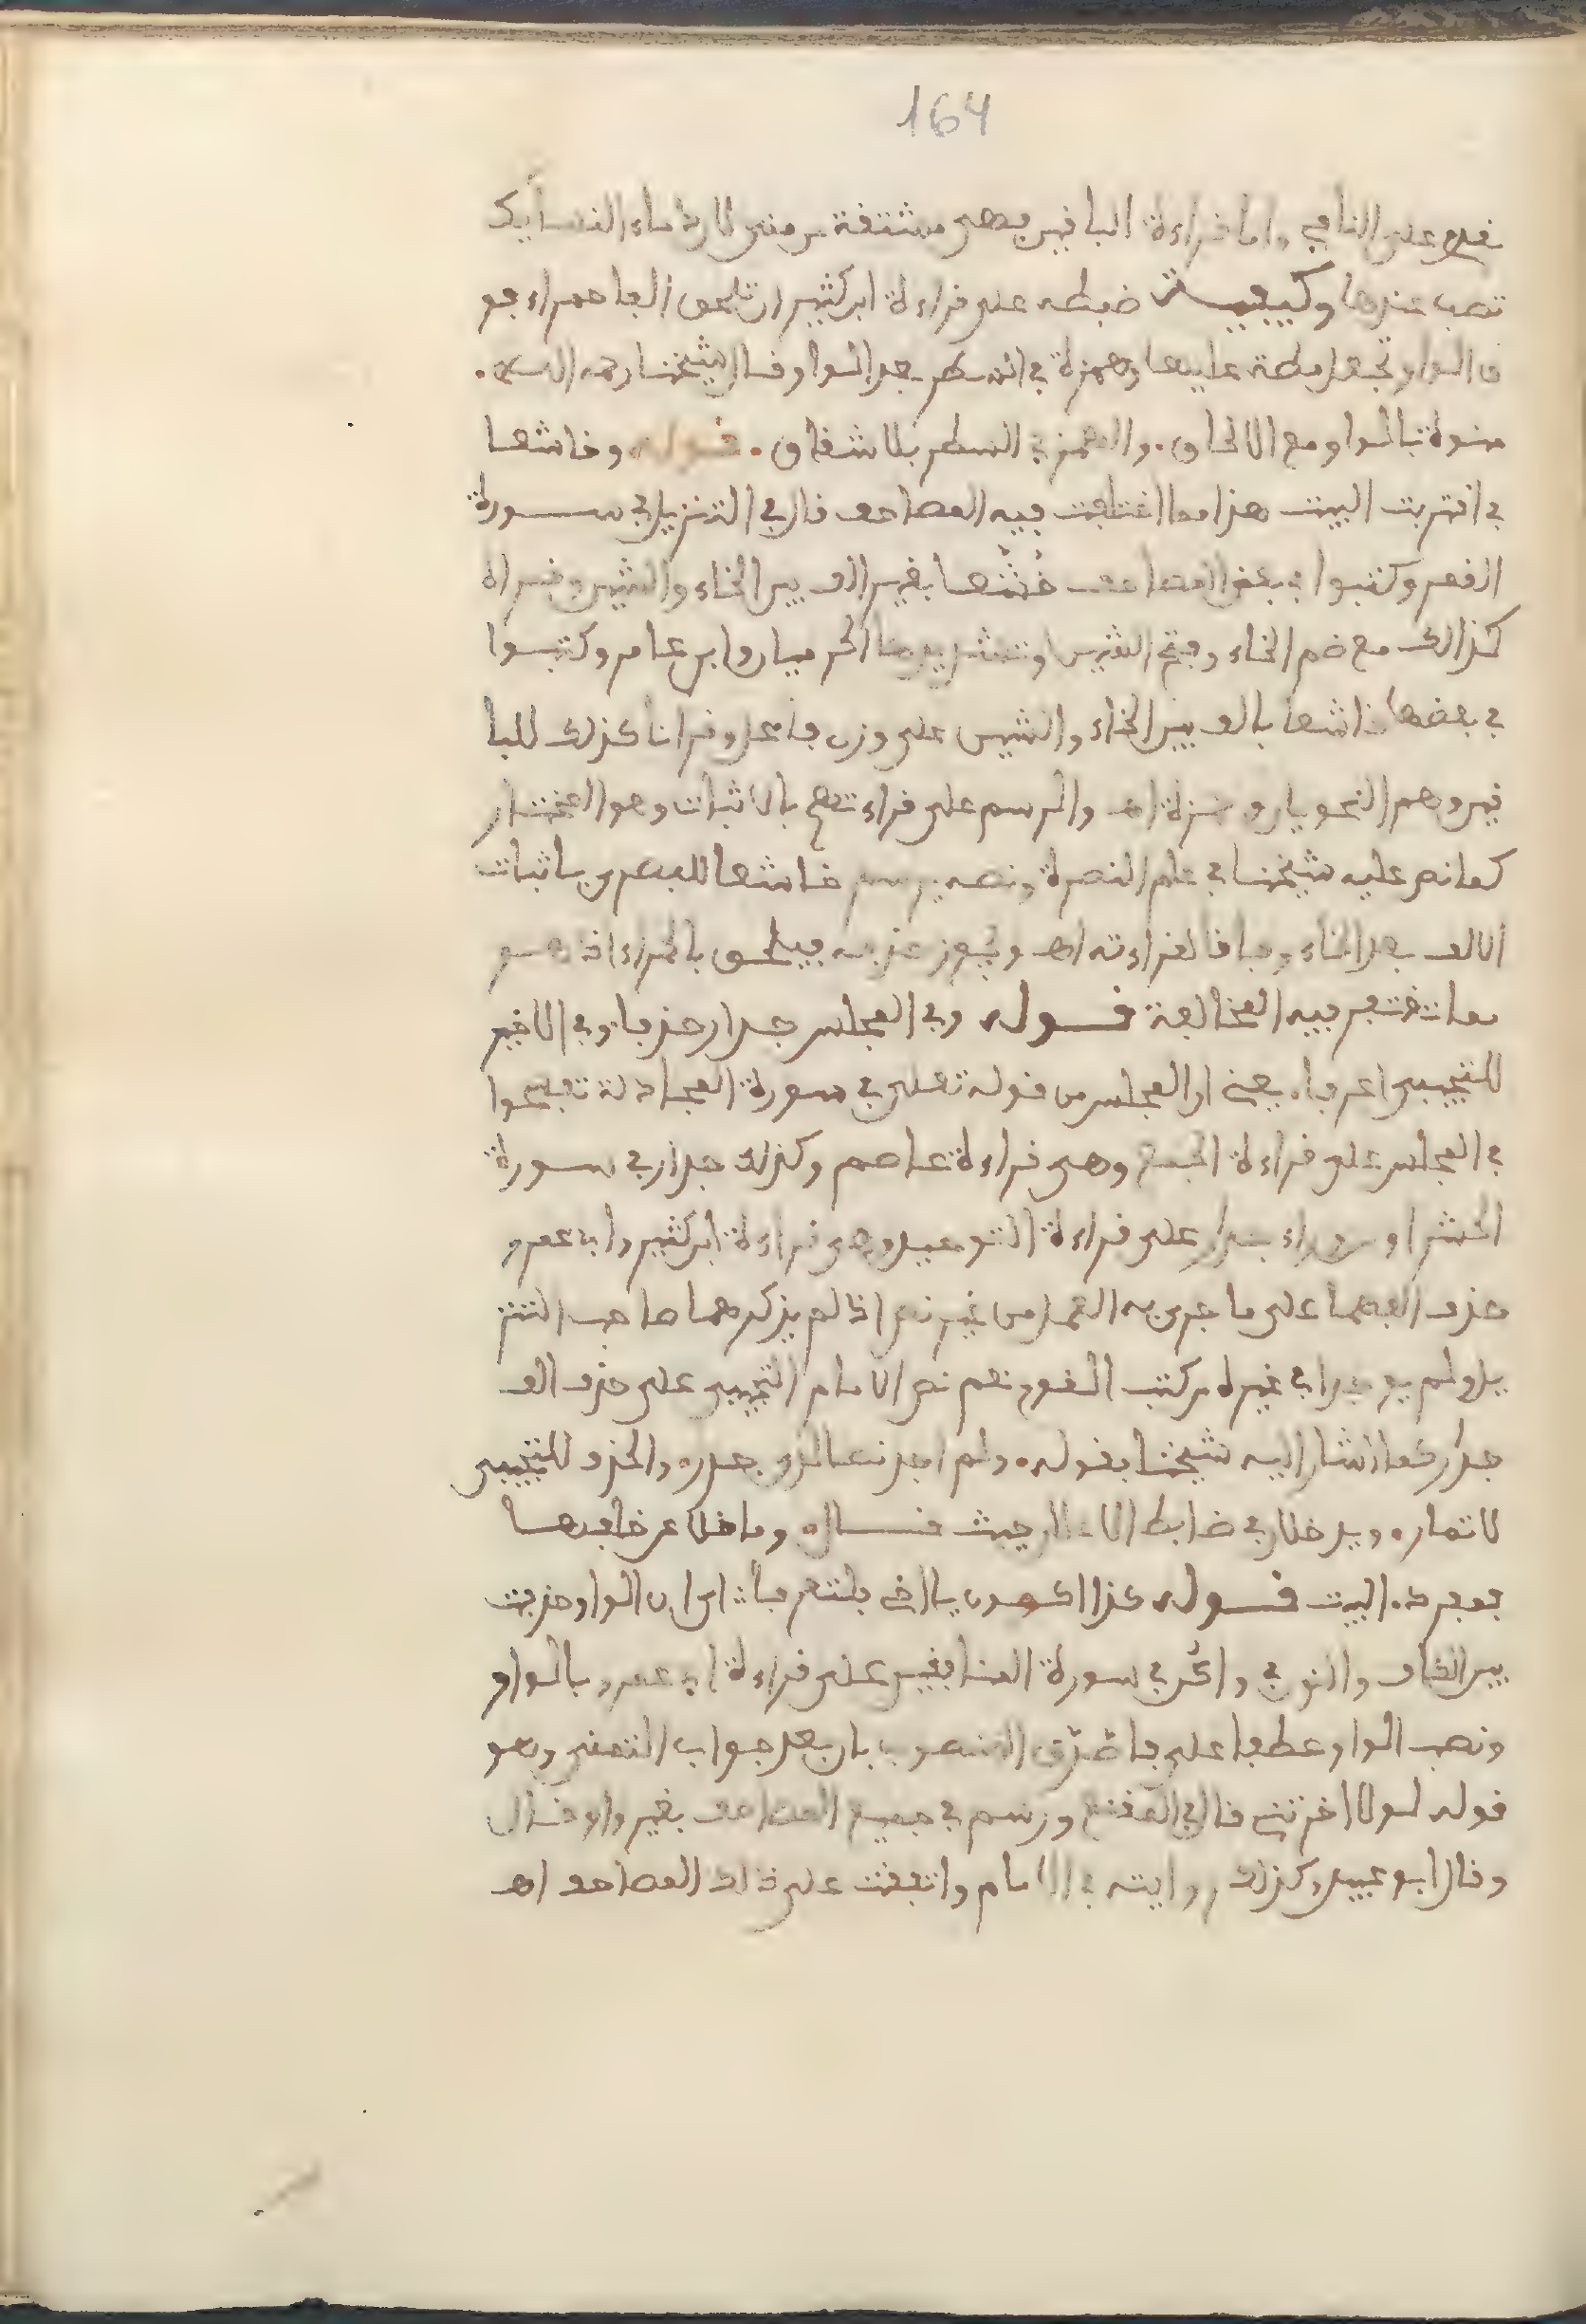 164
نفلوعلى النافي واما قراءة الباقين فهي مشتقة من منى لان دماء النسايك
تصب عندها وكيفية ضبطه على قراءة ابن كثير ان تلحق الفا حمراء فو
ق الواو وتجعل مطة عليها وهمزة في السطر بعد الواو قال شيخنا رحمه الله
منوة بالواو مع الالحاق. والهمز في السطر بلا شقاق. قوله وخاشعا
في اقتربت البيت هذا مما اختلفت فيه المصاحف قال في التنزيل في سورة
القمر وكتبوا في بعض المصاحف خُشَّعا بغير الف بين الخاء والشين وقراه
كذالك مع ضم الخاء وفتح الشين وتشديدها الحرميان وابن عامر وكتبوا
في بعضها خاشعا بالف بين الخاء والشين على وزن فاعل وقرانا كذلك للبا
قين وهم النحويان وحمزة اهـ والرسم على قراءتهم بالاثبات وهو المختار
كما نص عليه شيخنا في علم النصرة ونصه يرسم خاشعا للبصري باثبات
الالف بعد الخاء وفاقا لقراءته اهـ ويجوز حذفه فيلحق بالحمراء اذ هو
مما تغتفر فيه المخالفة قوله وفي المجلس جدار حذفا. وفي الاخير
للتجيبي اعرفا. يعني ان المجلس من قوله تعلى في سورة المجادلة تفسحوا
في المجلس على قراءة الجمع وهي قراءة عاصم وكذلك جدار في سورة
الحشر او من وراء جدار على قراءة التوحيد وهي قراءة ابن كثير وابي عمرو
حذف الفهما على ما جرى به العمل من غير نص اذ لم يذكرهما صاحب التنز
يل ولم يوجدا في غيره من كتب القوم نعم نص الامام التجيبي على حذف الف
جدار كما اشار اليه شيخنا بقوله. ولم اجد نصا لذي جدر. والحذف للتجيبي
لا تمار. ويدخلان في ضابط الاعمال حيث قال. وما خلا عن خلفها
فمجرد. البيت قوله كذا اكون يا اخي فلتعرفا. اي ان الواو حذفت
بين القاف والنون في واكن في سورة المنافقين على قراءة ابي عمرو بالواو
ونصب الواو عطفا على فاصَّدَّق المنصوب بان بعد جواب التمني وهو
قوله لولا اخرتني قال في المقنع ورسم في جميع المصاحف بغير واو قال
وقال ابو عبيد وكذلك رايته في الامام واتفقت على ذلك المصاحف اهـ